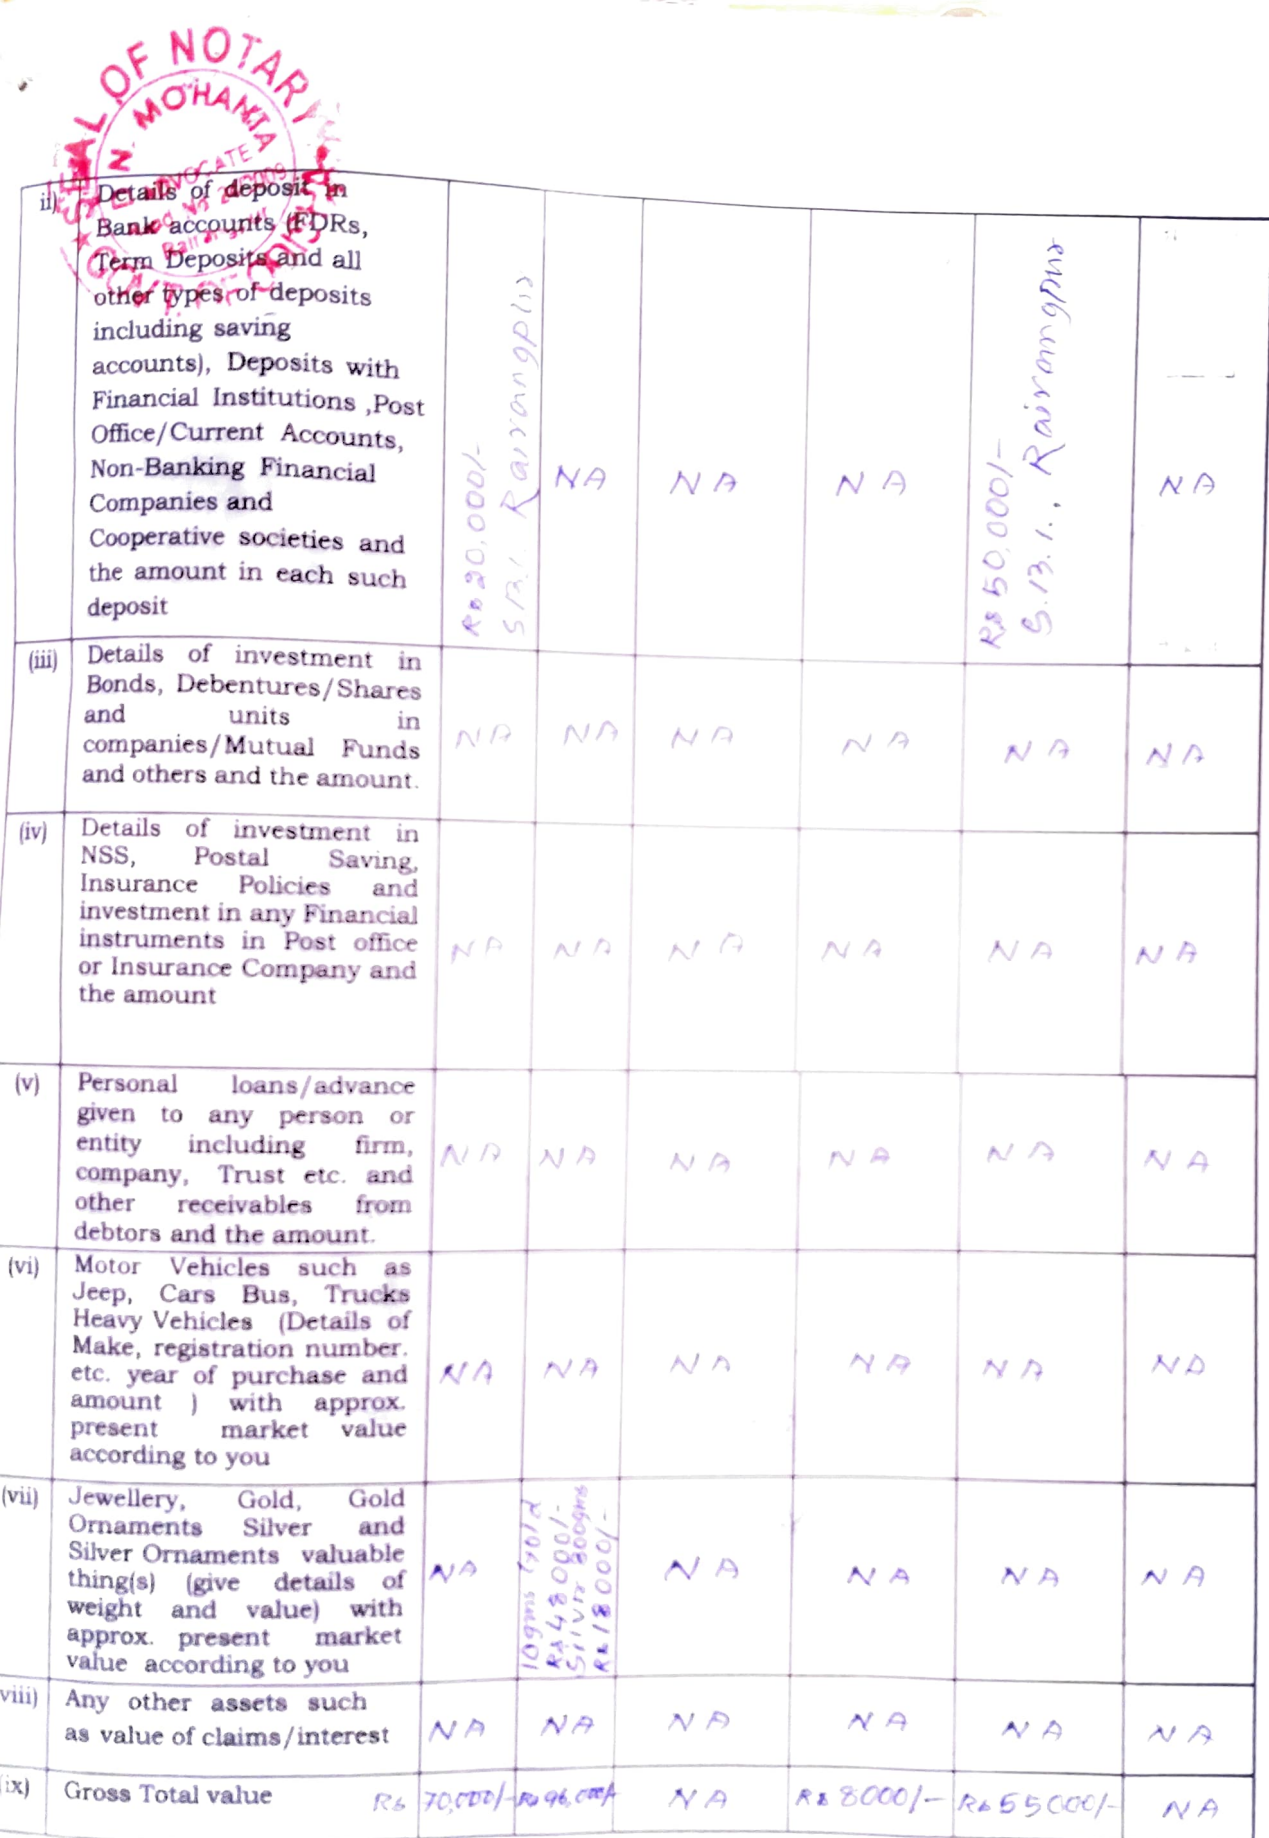 SEAL OF NOTARY
N. MOHANTA
ADVOCATE
ii) Details of deposit in
Bank accounts (FDRs,
Term Deposits and all
other types of deposits
including saving
accounts), Deposits with
Financial Institutions ,Post
Office/Current Accounts,
Non-Banking Financial
Companies and
Cooperative societies and
the amount in each such
deposit
Rs 20,000/-
S.B.I. Rairangpur
NA NA NA
Rs 50,000/-
S.B.I., Rairangpur
NA
(iii) Details of investment in
Bonds, Debentures/Shares
and units in
companies/Mutual Funds
and others and the amount.
NA NA NA NA NA NA
(iv) Details of investment in
NSS, Postal Saving,
Insurance Policies and
investment in any Financial
instruments in Post office
or Insurance Company and
the amount
NA NA NA NA NA NA
(v) Personal loans/advance
given to any person or
entity including firm,
company, Trust etc. and
other receivables from
debtors and the amount.
NA NA NA NA NA NA
(vi) Motor Vehicles such as
Jeep, Cars Bus, Trucks
Heavy Vehicles (Details of
Make, registration number.
etc. year of purchase and
amount ) with approx.
present market value
according to you
NA NA NA NA NA NA
(vii) Jewellery, Gold, Gold
Ornaments Silver and
Silver Ornaments valuable
thing(s) (give details of
weight and value) with
approx. present market
value according to you
NA
10gms Gold
Rs 48000/-
Silver 300gms
Rs 18000/-
NA NA NA NA
viii) Any other assets such
as value of claims/interest
NA NA NA NA NA NA
ix) Gross Total value Rs 70,000/- Rs 96,000/- NA Rs 8000/- Rs 55000/- NA